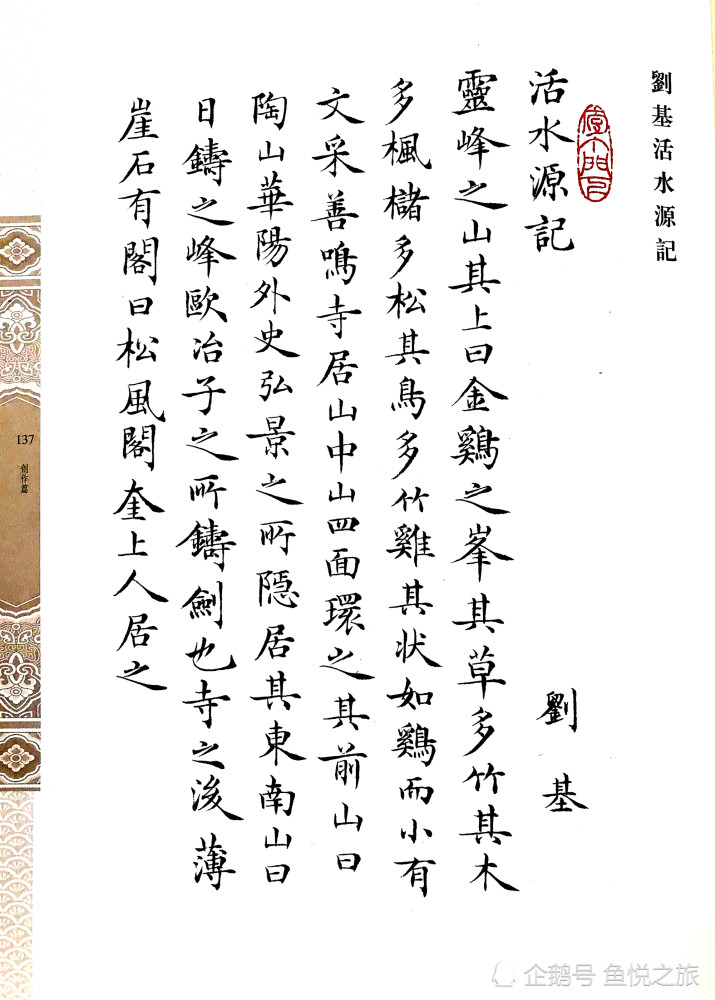 劉基活水源記
活水源記
劉基
靈峰之山其上曰金鷄之峯其草多竹其木
多楓櫧多松其鳥多竹雞其状如鷄而小有
文采善鳴寺居山中山四面環之其前山曰
陶山華陽外史弘景之所隱居其東南山曰
日鑄之峰歐冶子之所鑄劍也寺之後薄
崖石有閣曰松風閣奎上人居之
137
創作篇
企鹅号 鱼悦之旅